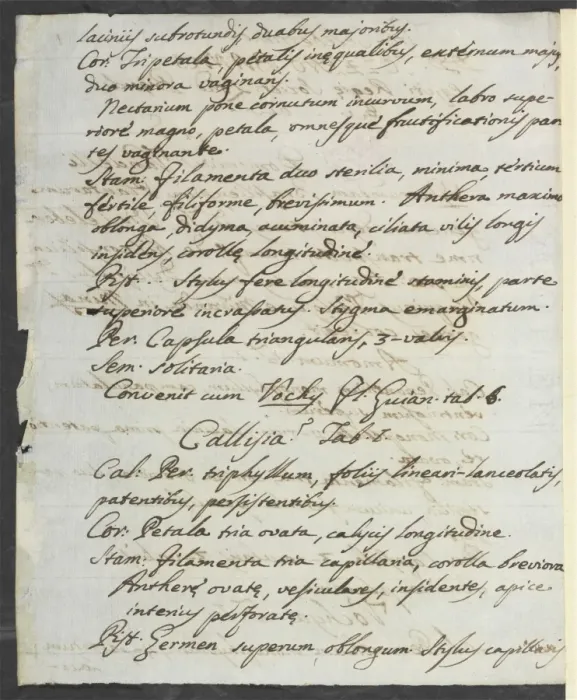 laciniis subrotundis, duabus majoribus.
Cor: Tripetala, petalis inęqualibus, extimum majus,
duo minora vaginans.
Nectarium pone cornutum incurvum, labro supe-
riore magno, petala, omnesque fructificationis par
tes vaginante.
Stam: filamenta duo sterilia, minima, tertium
fertile, filiforme, brevissimum. Anthera maxima
oblonga, didyma, acuminata, ciliata vilis longis
insidens, corollę longitudine.
Pist:. Stylus fere longitudine staminis, parte
superiore incrassatus. Stygma emarginatum.
Per: Capsula triangularis, 3-valvis.
Sem: solitaria.
Convenit cum Vochy, fl: Guian: tab. 6.
Callisia? Tab I.
Cal: Per: triphyllum, foliis lineari-lanceolatis,
patentibus, persistentibus.
Cor: Petala tria ovata, calycis longitudine.
Stam: filamenta tria capillaria, corolla breviora
Antherę ovatę, vesiculares, insidentes, apice
interius perforatę.
Pist: Germen superum, oblongum. Stylus capillaris